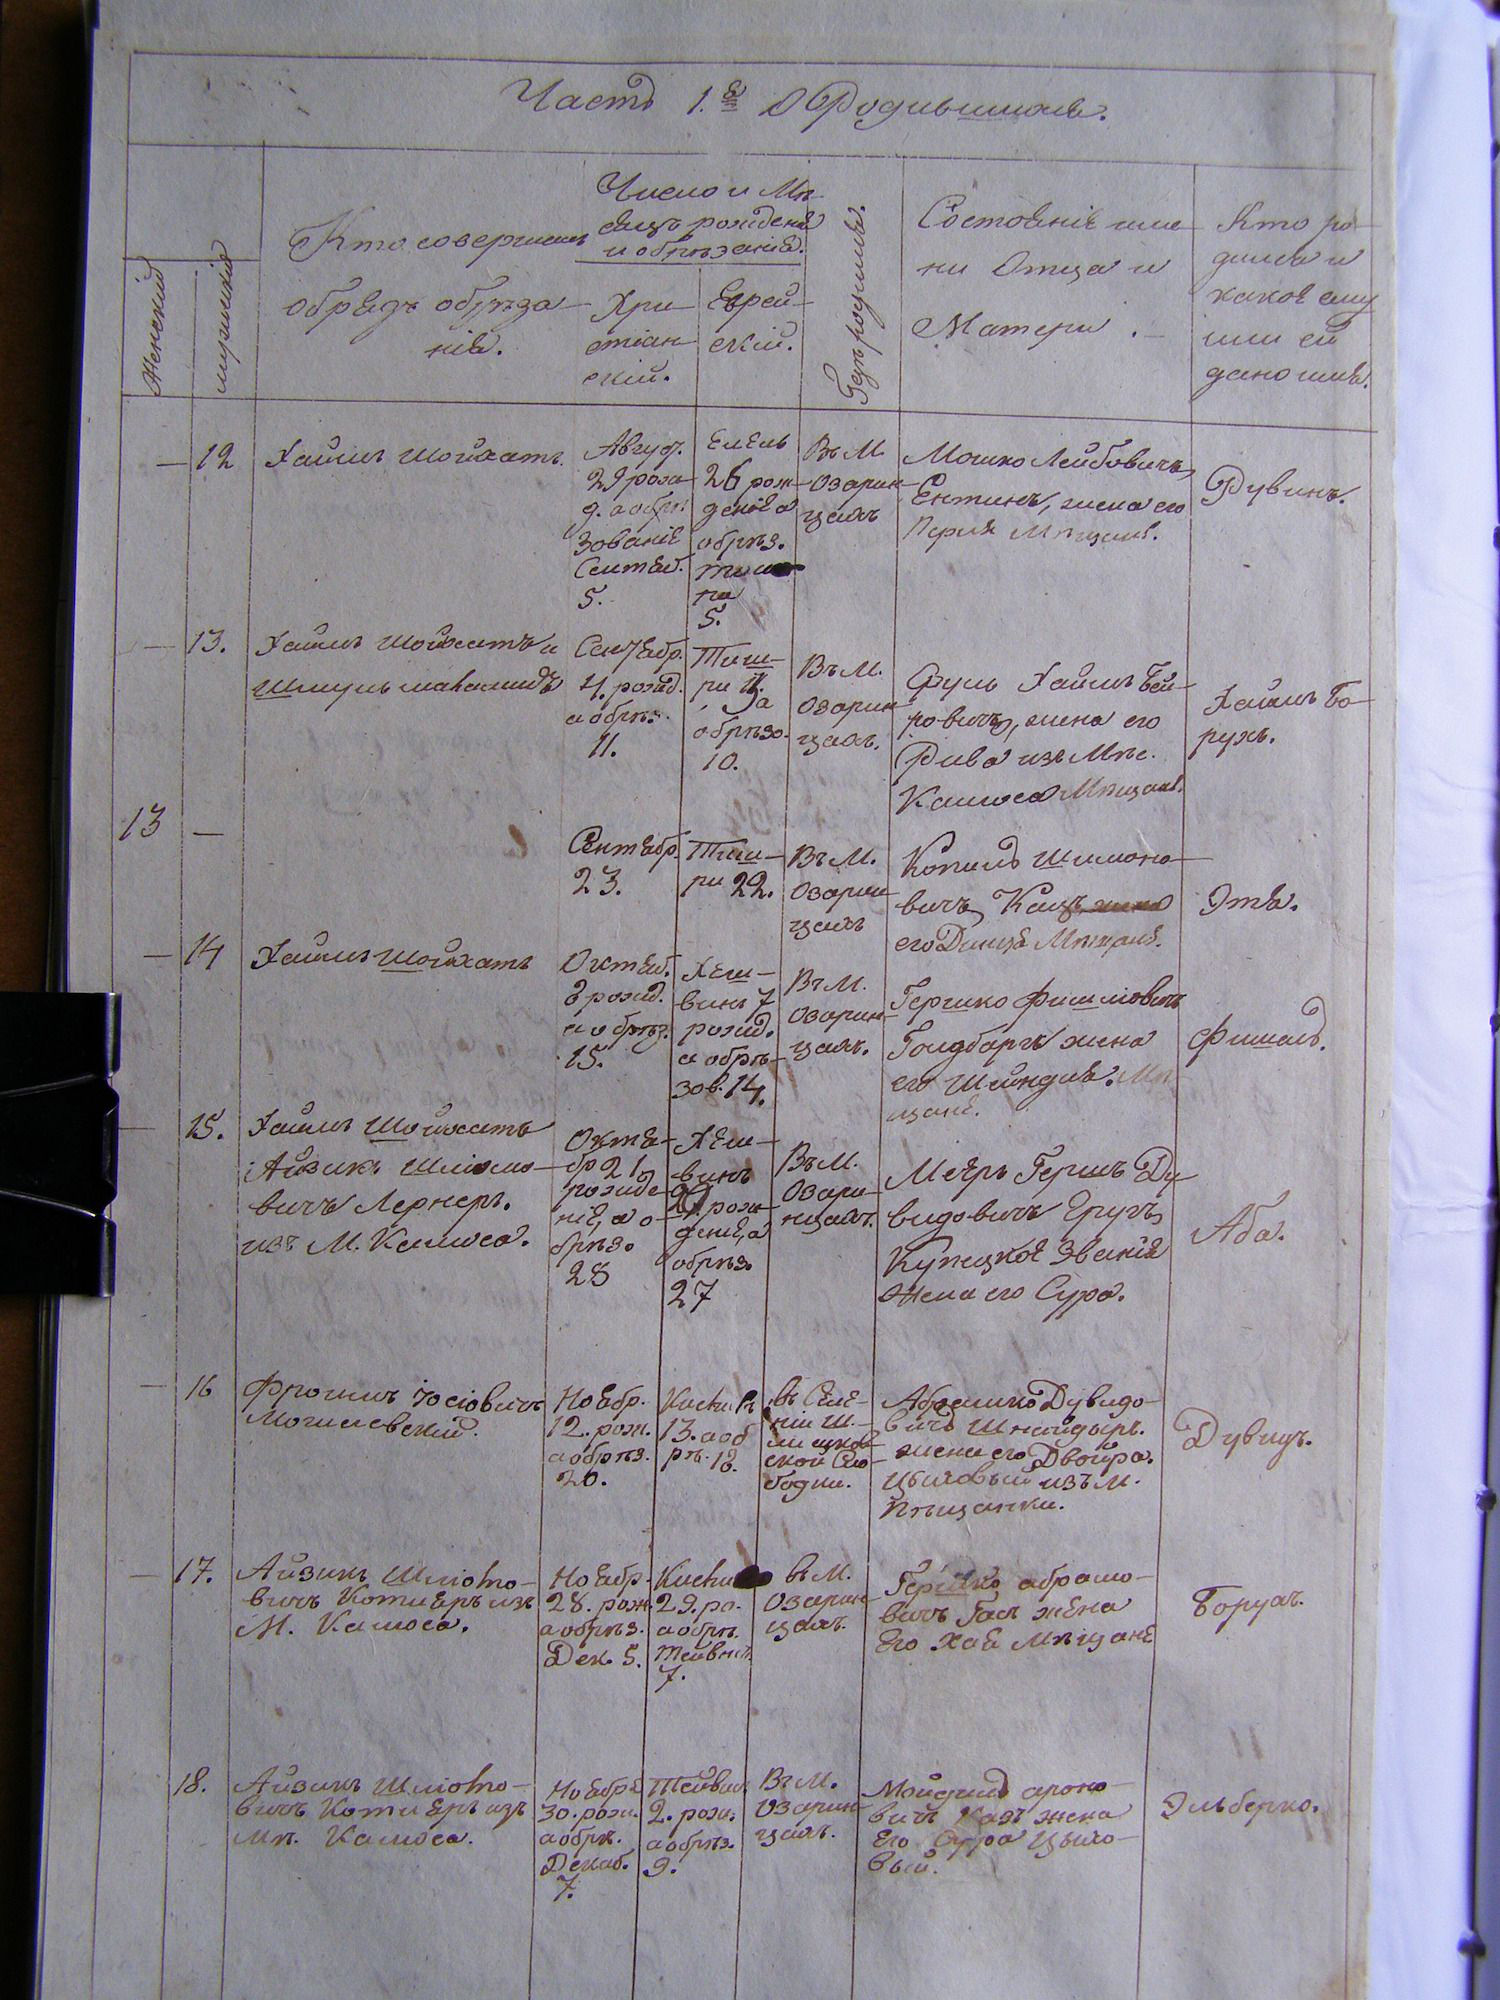 Часть 1.я О Родившихся.
Женский
мужский
Кто совершилъ
обрядъ обрѣза-
нія.
Число и Мѣ-
сяцъ рожденія
и обрѣзанія.
Хри-
стіан-
скій.
Еврей-
скій.
Гдѣ родился.
Состояніе име-
ни Отца и
Матери.-
Кто ро-
дился и
какое ему
или ей
дано имя.
— 12
Хаимъ Шойхатъ.
Авгус.
29 рож-
д. а обрѣ-
зованіе
Сентяб.
5.
Елель
26 рож-
денія а
обрѣз.
тиш
ри
5.
Въ М.
Озарин-
цахъ
Мошко Лейбовичъ
Ентинъ, жена его
Перля Мѣщане.
Рувинъ.
— 13.
Хаимъ Шойхатъ и
Шмуль
Сентябр.
4. рожд.
а обрѣз.
11.
Тиш-
ри 3. а
обрѣзо.
10.
Въ М.
Озарин-
цахъ.
Сруль Хаимъ Бей-
ровичъ, жена его
Рива изъ Мѣс.
Калюса Мѣщане.
Хаимъ Бо-
рухъ.
13 —
Сентябр.
23.
Тиш-
ри 22.
Въ М.
Озарин-
цахъ
Копиль Шимоно-
вичъ Кацъ, жена
его Мѣщане.
Этя.
— 14
Хаимъ Шойхатъ
Октяб.
8 рожд.
а обрѣз.
15.
Хеш-
винъ 7
рожд.
а обрѣ-
зов. 14.
Въ М.
Озарин-
цахъ.
Гершко Фишліовичъ
Голдбаргъ жена
его Шейндля. Мѣ-
щане.
Фишель.
15.
Хаимъ Шойхатъ
Айзикъ Шліомо-
вичъ Лернеръ.
изъ М. Калюса.
Октя-
бр 21
рожде-
ніе, а о-
брѣзо
28
Хеш-
винъ
рож-
дение, а
обрѣз.
27
Въ М.
Озари-
нцахъ.
Меяръ Гершъ Ду-
видовичъ
Купецкое Званія
жена его Сура.
Аба.
— 16
Фроимъ Іосіовичъ
Могилевскій.
Ноябр.
12. рож.
а обрѣз.
20.
Кисли
13. а об
рѣ. 18.
въ Селе-
ніи Ш-
ской Сло-
бодки.
Абрамко Дувидо-
вичъ Шнайдыръ.
жена его Двойра.
Цыховый изъ М.
Пѣщанки.
Дувидъ.
— 17.
Айзикъ Шліомо-
вичъ Котляръ изъ
М. Калюса.
Ноябр.
28. рож.
а обрѣз.
Дек. 5.
Кисли
29. ро.
а обрѣ.
Тейвис.
7.
въ М.
Озарин-
цахъ.
Гершко Абрамо-
вичъ жена
Его Хая Мѣщане
Борухъ.
18.
Айзикъ Шліомо-
вичъ Котляръ изъ
Мѣ. Калюса.
Ноября
30. рож.
а обрѣ.
Декаб.
7.
Тейвис
2. рож.
а обрѣз.
9.
Въ М.
Озарин-
цахъ.
Мойсиль Ароно-
вичъ Казъ жена
Его Сура Цыхо-
вый.
Эльберко.